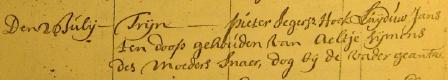 Den 28 Julij — Trijn — Pieter Jegersz Hoek Luijduw Jans
ten doop gehouden van Aeltje Sijmons
des Moeders Snaer, dog bij de vader geantw